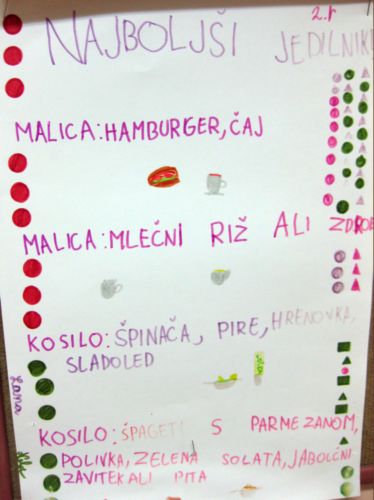 2.r
NAJBOLJŠI JEDILNIKI
MALICA: HAMBURGER, ČAJ
MALICA: MLEČNI RIŽ ALI ZDROB
KOSILO: ŠPINAČA, PIRE, HRENOVKA,
SLADOLED
KOSILO: ŠPAGETI S PARMEZANOM,
POLIVKA, ZELENA SOLATA, JABOLČNI
ZAVITEK ALI PITA